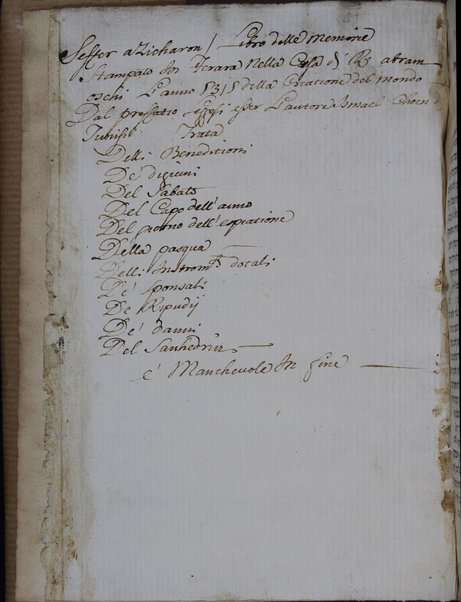 Seffer azicharon / Libro delle memorie
Stampato In Ferara Nella Casa di R. abram
oschi L'anno 5315 della Creatione del mondo
Dal prefatio esser L'autore Ismael Choen
Tratta
Delli Beneditioni
De' digiuni
Del Sabato
Del Capo dell'anno
Del giorno dell'espiatione
Della pasqua
Delli Instromti dotali
De' sponsali
De Ripudij
De' danni
Del Sanhedrin
è Manchevole In fine